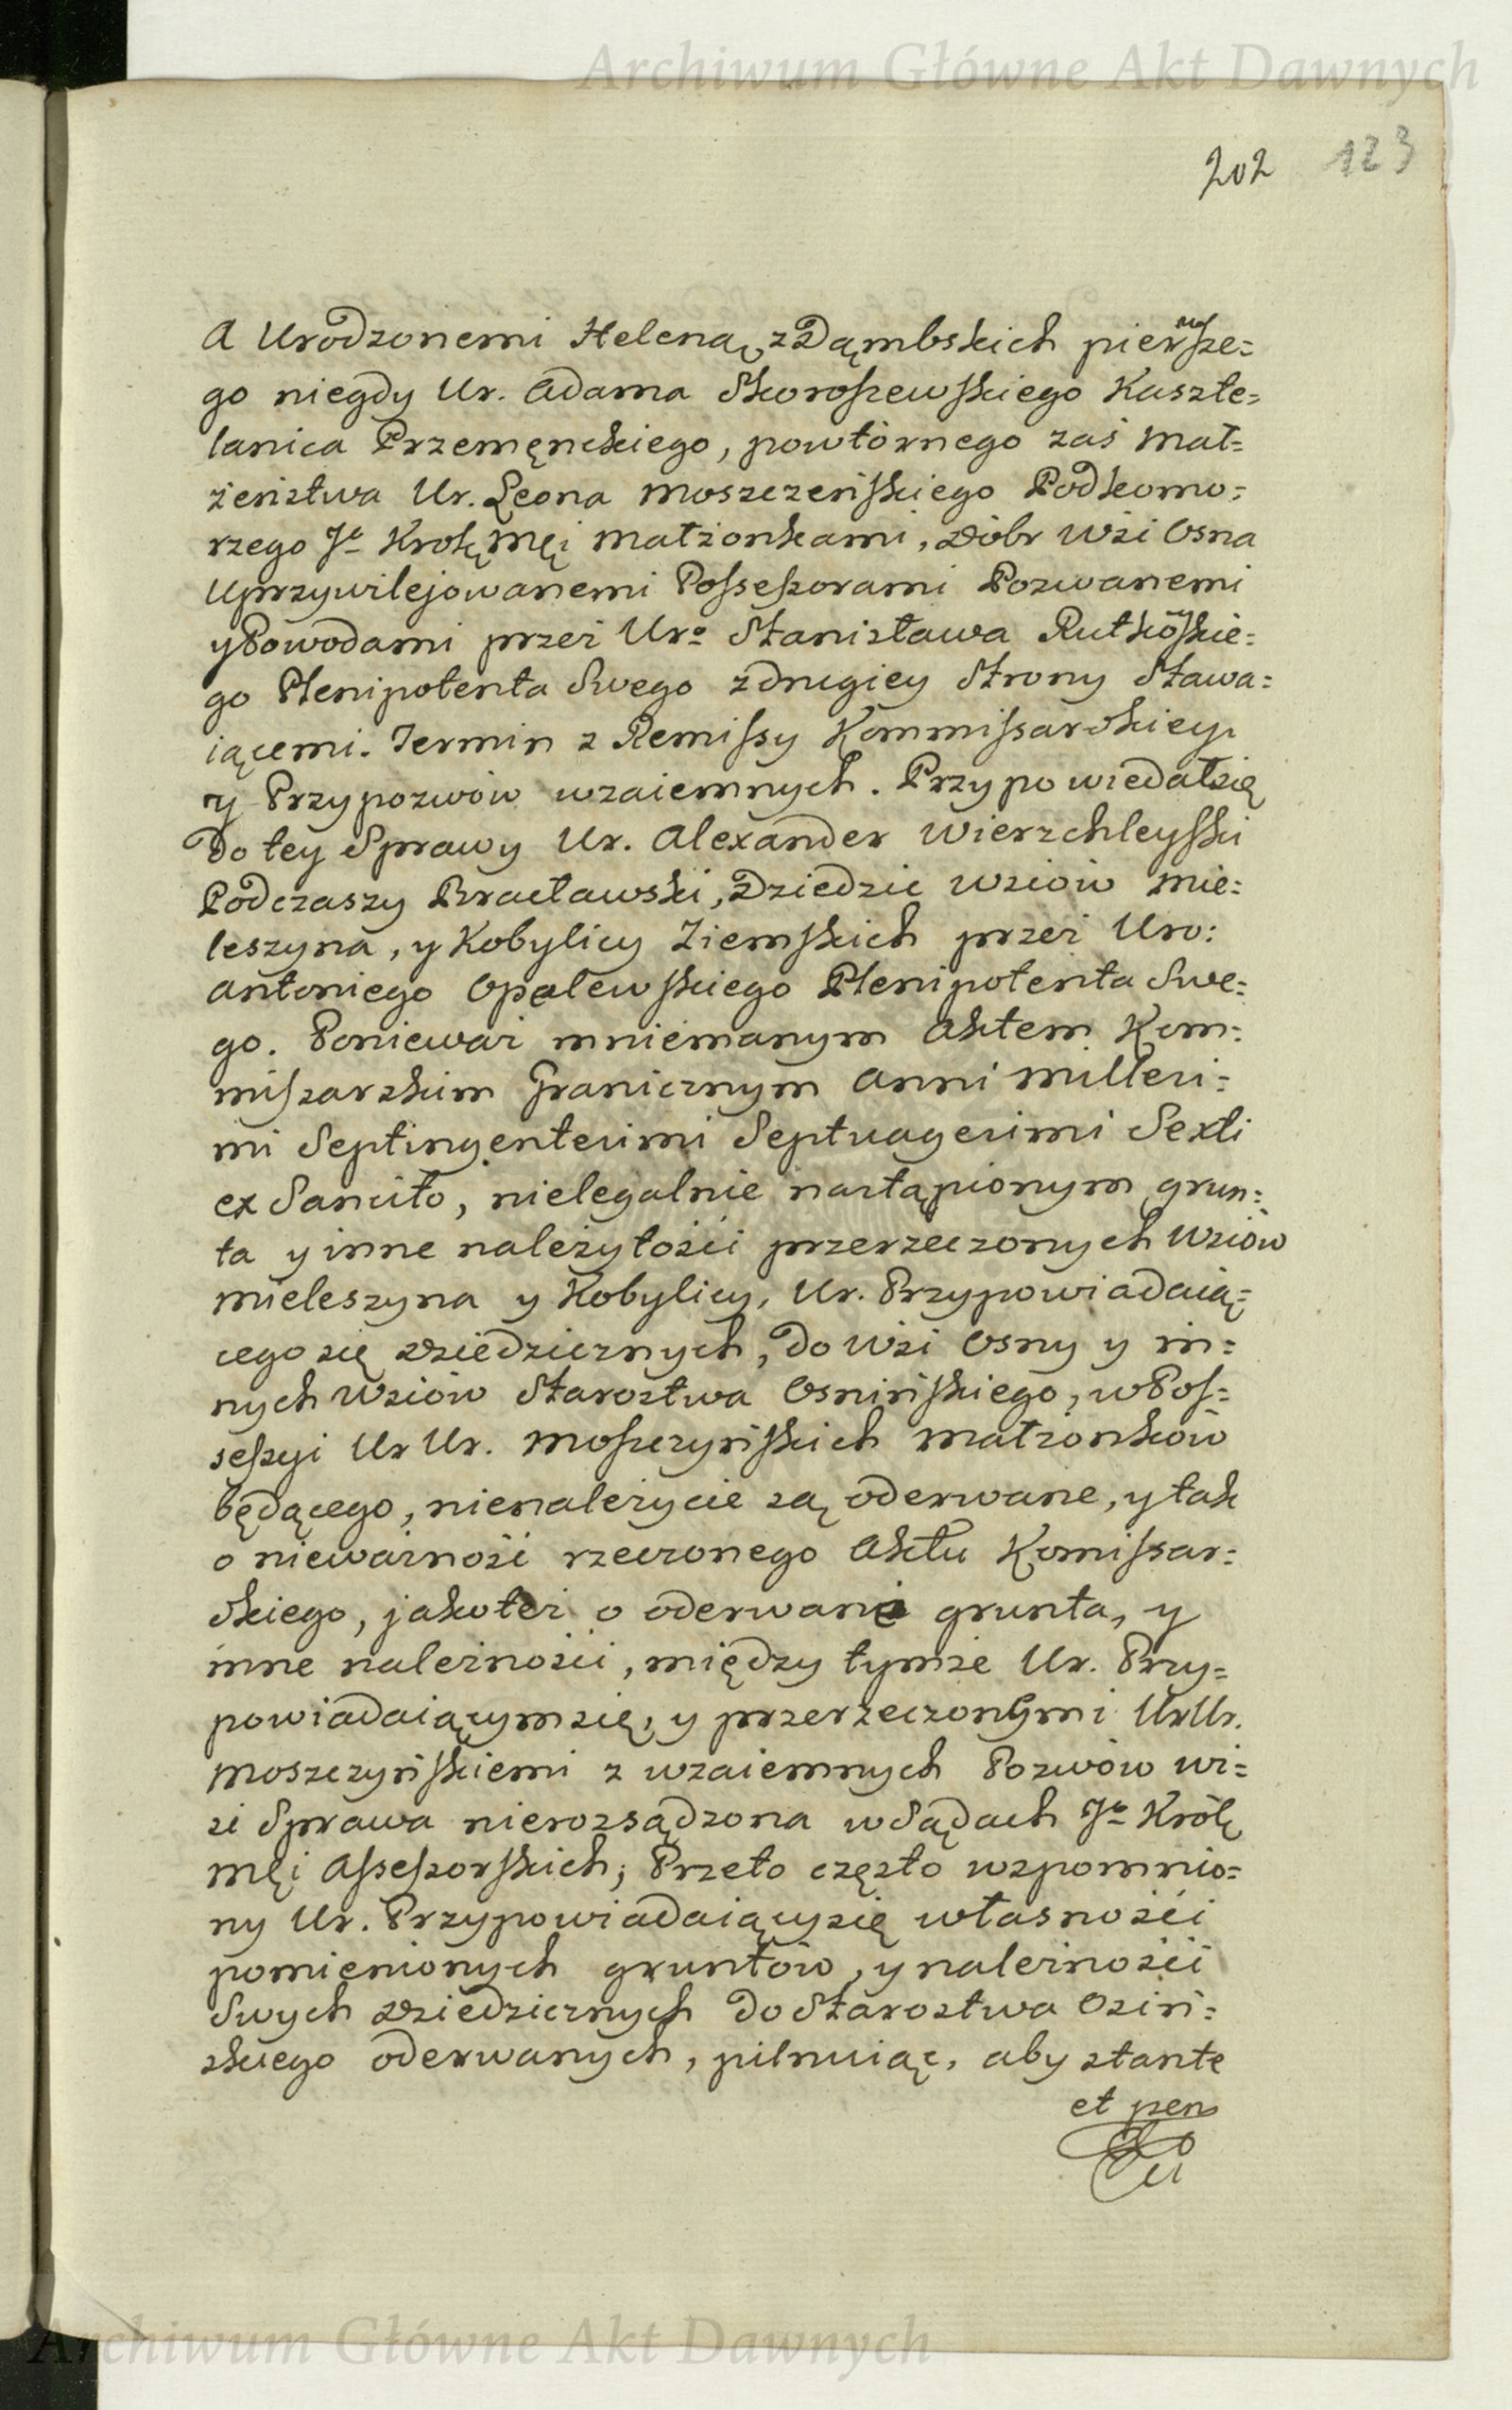 Archiwum Główne Akt Dawnych
202 123
A Urodzonemi Heleną z Dąmbskich pierwsze=
go niegdy Ur. Adama Skoroszewskiego Kaszte=
lanica Przemęnckiego, powtórnego zaś Mał=
żeństwa Ur. Leona Moszczeńskiego Podkomo=
rzego Je Krolę Męi Małżonkami, Dóbr Wśi Osna
Uprzywilejowanemi Possessorami Pozwanemi
y Powodami przez Uro Stanisława Rutkowskie=
go Plenipotenta Swego z drugiey Strony Stawa=
iącemi. Termin z Remissy Kommissarskiey
y Przypozwów wzaiemnych. Przypowiedał się
do tey Sprawy Ur. Alexander Wierzchleyski
Podczaszy Bracławski, Dziedzic Wsiów Mie=
leszyna, y Kobylicy Ziemskich przez Uro:
Antoniego Opalewskiego Plenipotenta Swe=
go. Ponieważ mniemanym Aktem Kom=
missarskim Granicznym Anni Millesi=
mi Septingentesimi Septuagesimi Sexti
ex Sancito, nielegalnie nastąpionym, grun=
ta y inne należytości przerzeczonych Wsiów
Mieleszyna y Kobylicy, Ur. Przypowiadaią=
cego się Dziedzicznych, do Wśi Osny y in=
nych Wsiów Starostwa Osnińskiego, w Pos=
sessyi Ur Ur. Moszczyńskich Małżonków
będącego, nienależycie są oderwane, y tak
o nieważność rzeczonego Aktu Komissar=
skiego, jako też o oderwane grunta, y
inne należności, między tymże Ur. Przy=
powiadaiącym się, y przerzeczonymi Ur Ur.
Moszczyńskiemi z wzaiemnych Pozwów wi=
si Sprawa nierozsądzona w Sądach Je Królę
Męi Assessorskich; Przeto często wspomnio=
ny Ur. Przypowiadaiący się własności
pomienionych gruntów, y należności
Swych Dziedzicznych do Starostwa Osiń=
skiego oderwanych, pilnuiąc, aby stante
et pen
Archiwum Główne Akt Dawnych